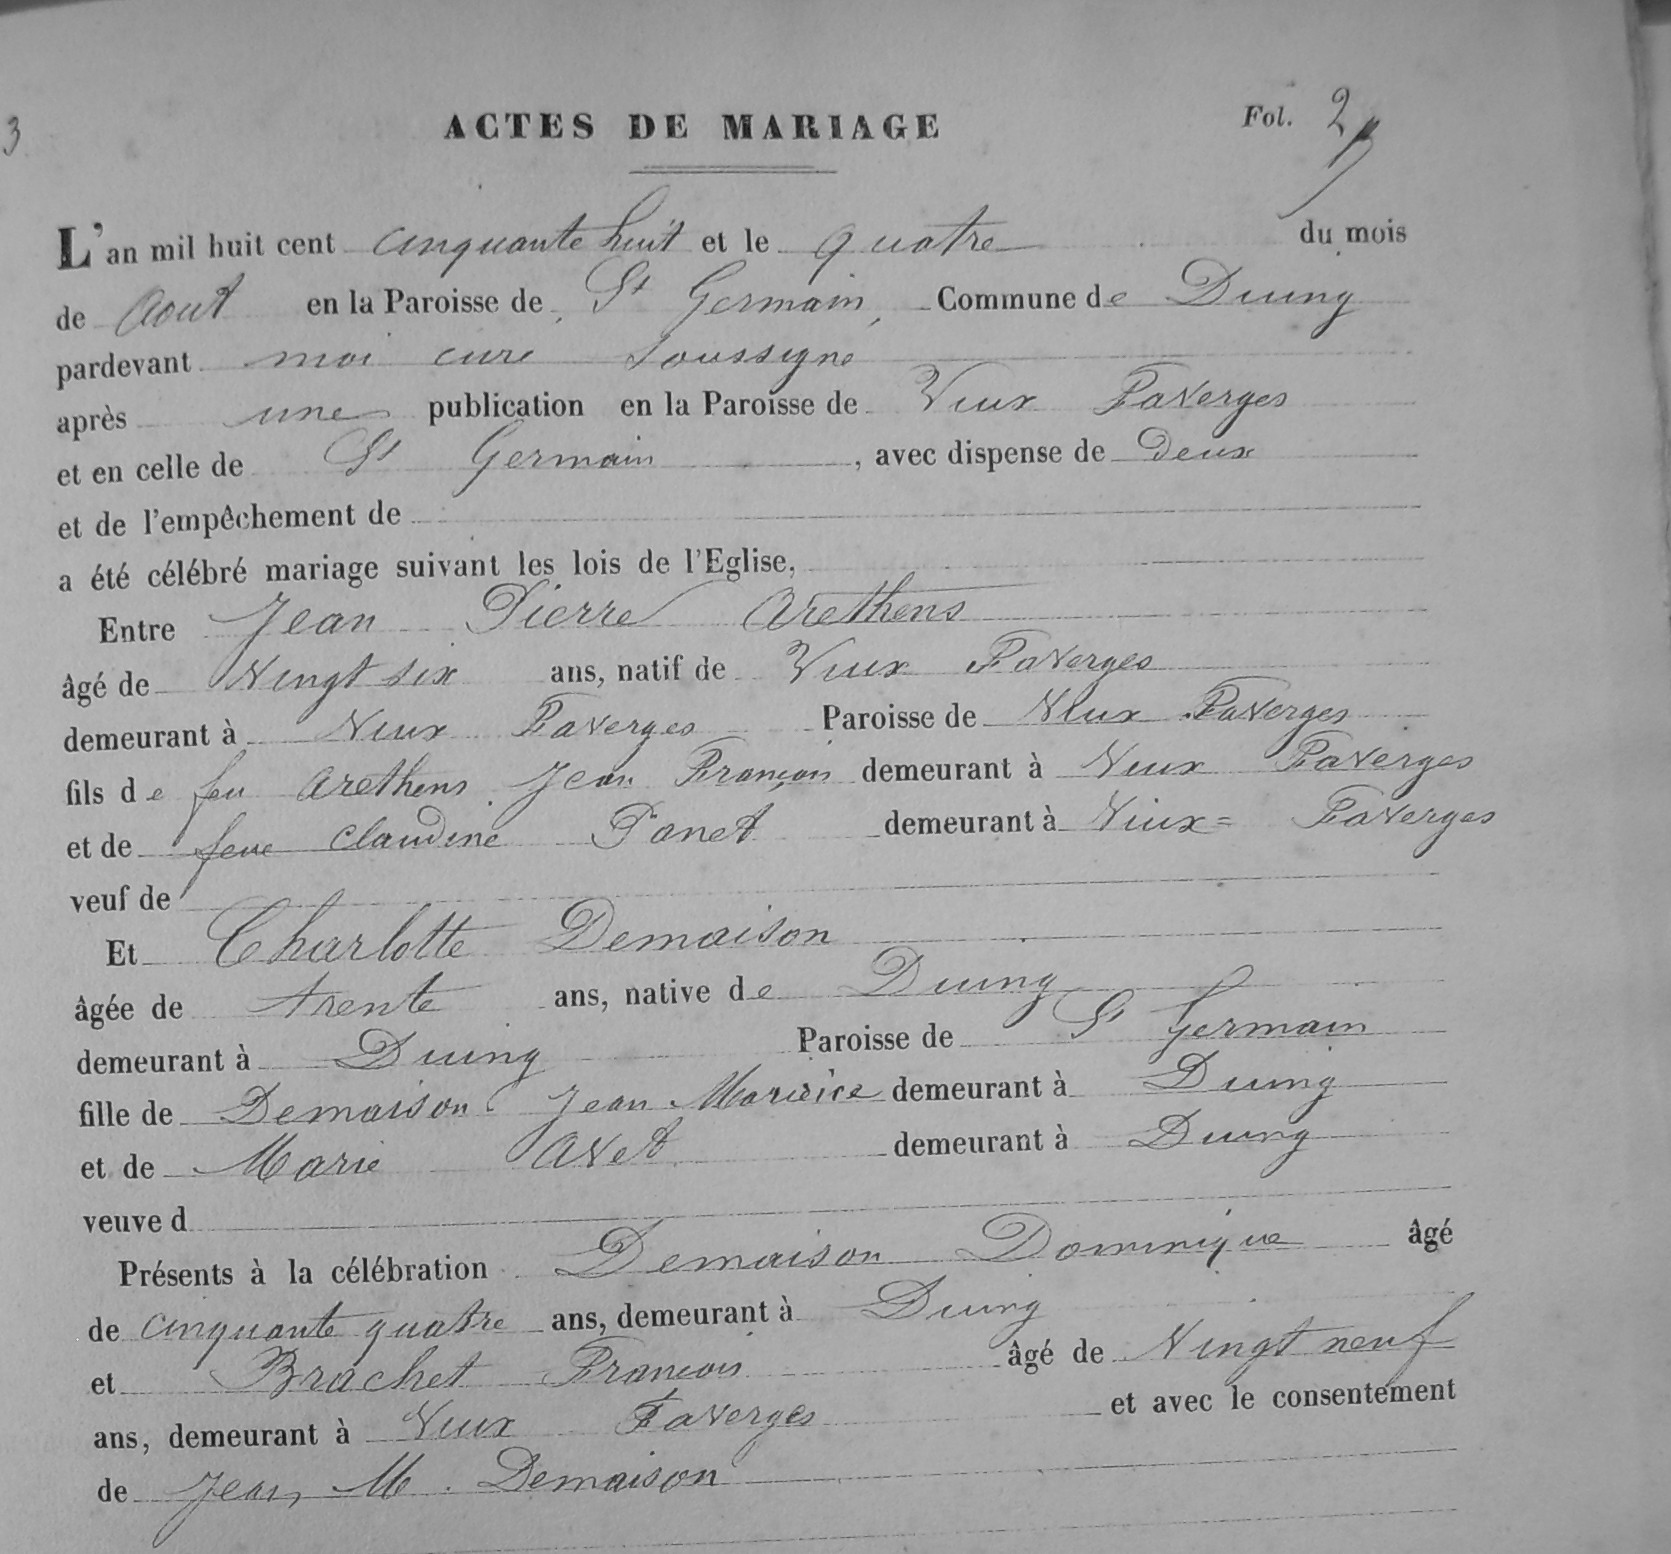 3
ACTES DE MARIAGE Fol. 2
L'an mil huit cent cinquante huit et le quatre du mois
de Aout en la Paroisse de St Germain, Commune de Duing
pardevant moi curé soussigné
après une publication en la Paroisse de Viux Faverges
et en celle de St Germain, avec dispense de Deux
et de l'empêchement de
a été célébré mariage suivant les lois de l'Eglise,
Entre Jean Pierre Arethens
âgé de Vingt six ans, natif de Viux Faverges
demeurant à Viux Faverges Paroisse de Viux Faverges
fils de feu Arethens Jean François demeurant à Viux Faverges
et de feue Claudine Panet demeurant à Viux = Faverges
veuf de
Et Charlotte Demaison
âgée de trente ans, native de Duing
demeurant à Duing Paroisse de St Germain
fille de Demaison Jean Maurice demeurant à Duing
et de Marie Avet demeurant à Duing
veuve d
Présents à la célébration Demaison Dominique âgé
de cinquante quatre ans, demeurant à Duing
et Brachet François âgé de Vingt neuf
ans, demeurant à Viux Faverges et avec le consentement
de Jean M. Demaison